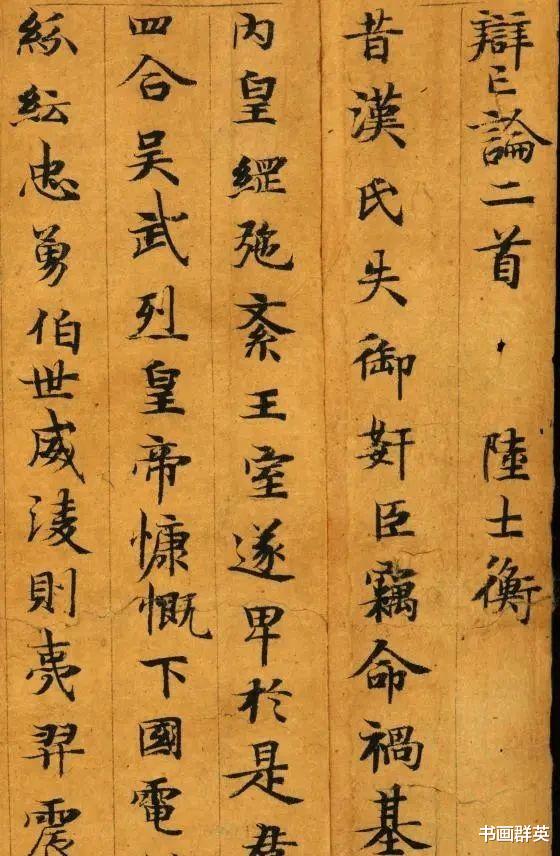 辯亡論二首 陸士衡
昔漢氏失御奸臣竊命禍基
內皇綱弛紊王室遂卑於是羣
四合吴武烈皇帝慷慨下國電
紛紜忠勇伯世威淩則夷羿震
书画群英